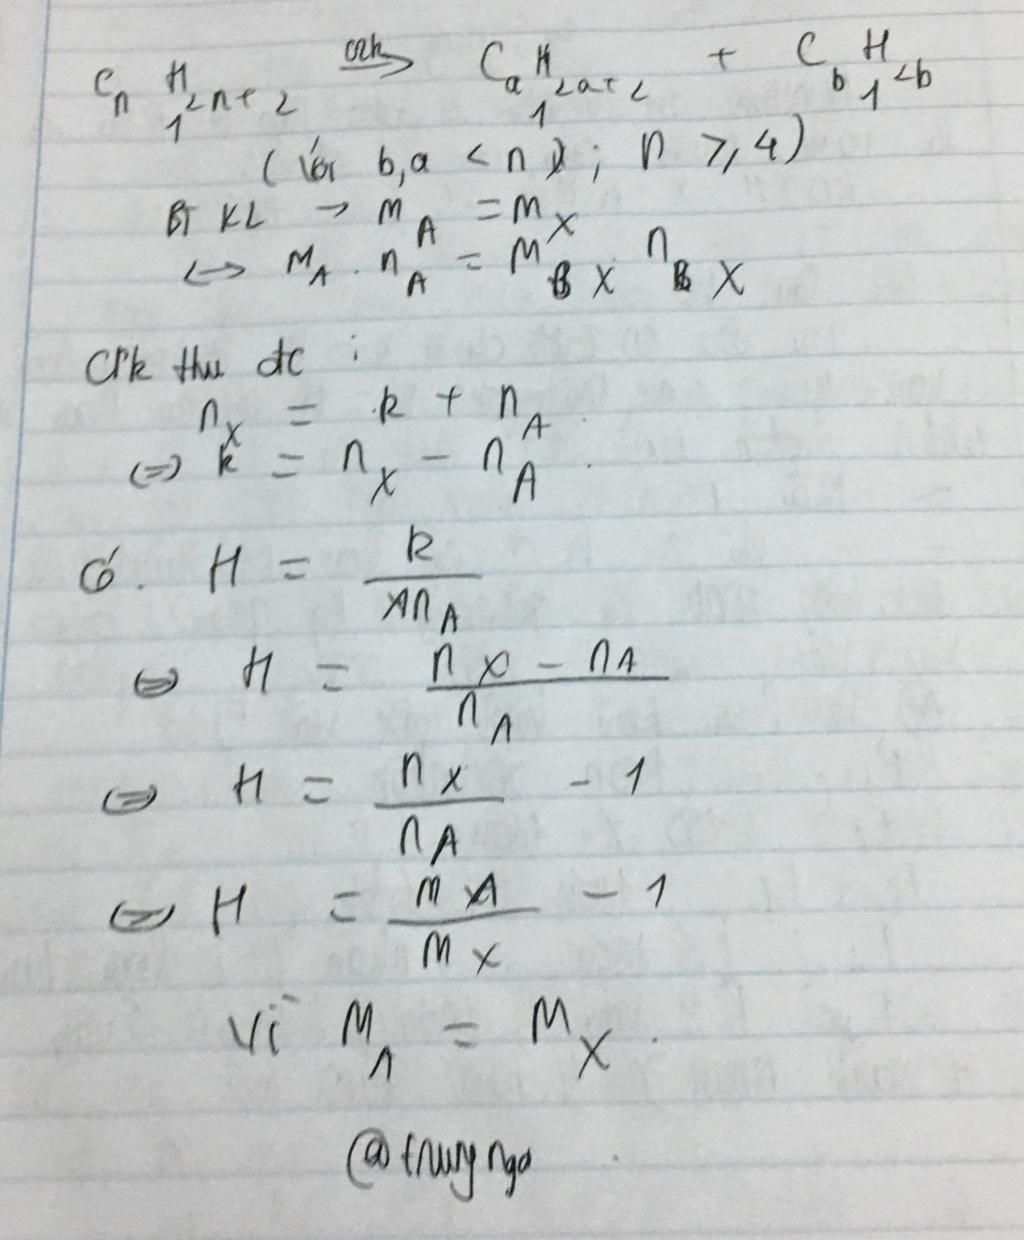 CnH2n+2 crk → CaH2a+2 + CbH2b
1 1 1
(Với b, a < n ; n ≥ 4)
BT KL → mA = mX
↔ MA . nA = MX nX
Crk thu đc :
nX = k + nA
⇔ k = nX - nA .
Có . H = k / nA
⇔ H = nX - nA / nA
⇔ H = nX / nA - 1
⇔ H = MA / MX - 1
Vì mA = mX .
@trungngo